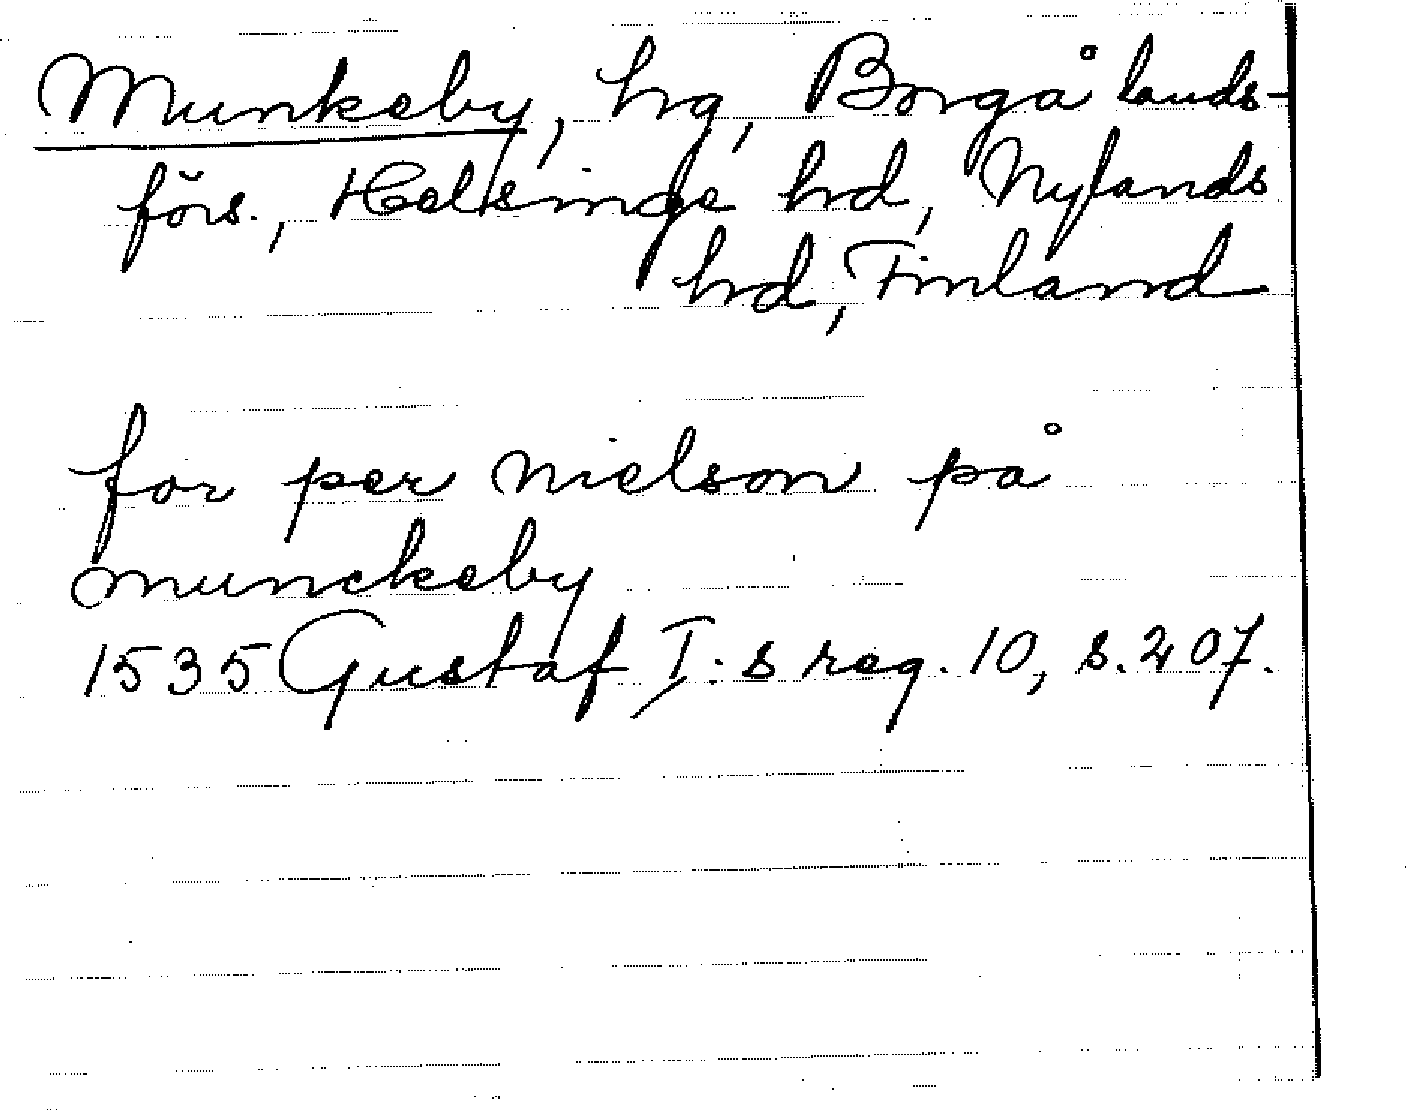 Munkeby, hg, Borgå lands-
förs., Helsinge hrd, Nylands
hrd, Finland
for per nielson på
munckeby
1535 Gustaf I:s reg. 10, s. 207.